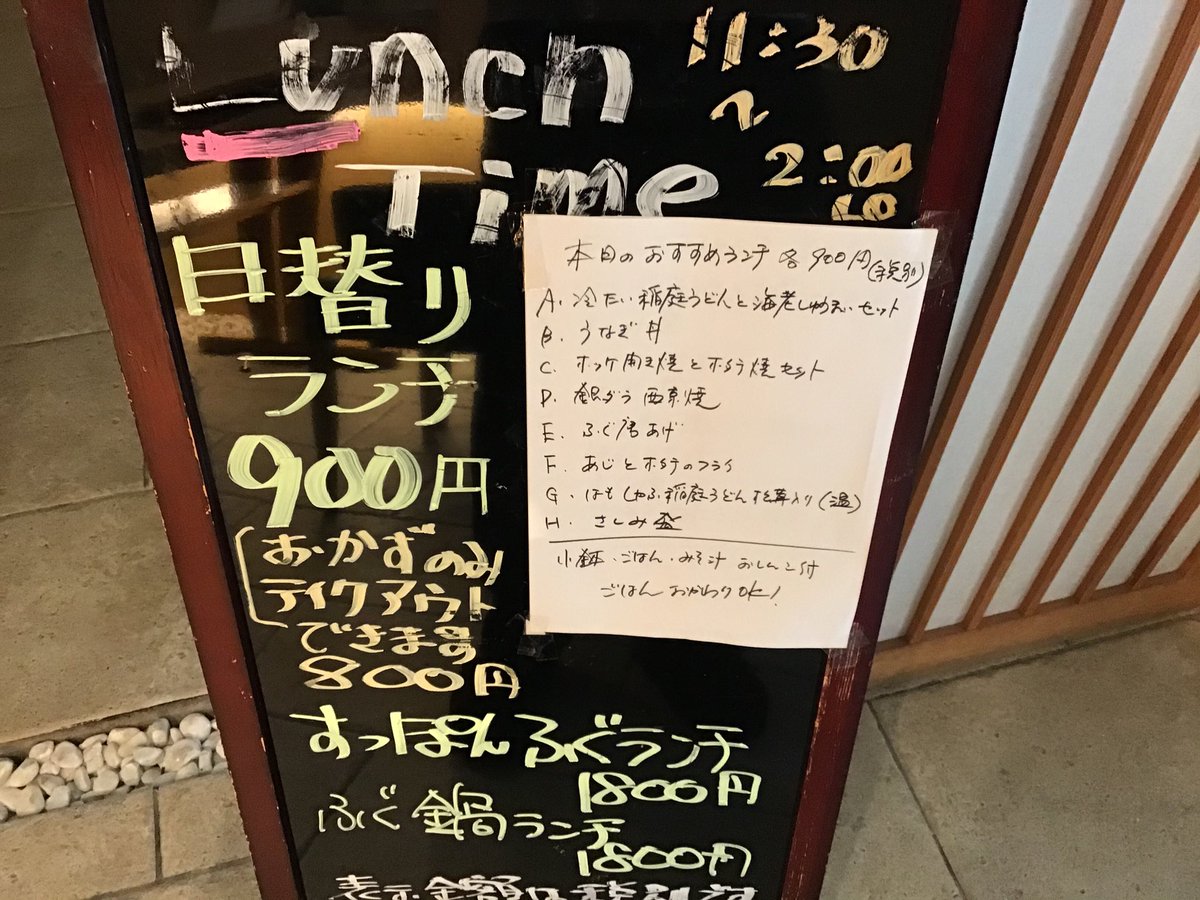 Lunch 11:30
〜
Time 2:00
LO
日替り
ランチ
900円
(おかずのみ
テイクアウト
できます
800円
すっぽんふぐランチ
1800円
ふぐ鍋ランチ
1800円
表示金額は税別です
本日のおすすめランチ 各900円(税別)
A. 冷たい稲庭うどんと海老しゅうまいセット
B. うなぎ丼
C. ホッケ開き焼とホタテ焼セット
D. 銀ダラ西京焼
E. ふぐ唐あげ
F. あじとホタテのフライ
G. はもしゃぶ稲庭うどん松茸入り(温)
H. さしみ
小鉢・ごはん・みそ汁 おしんこ付
ごはんおかわりOK!